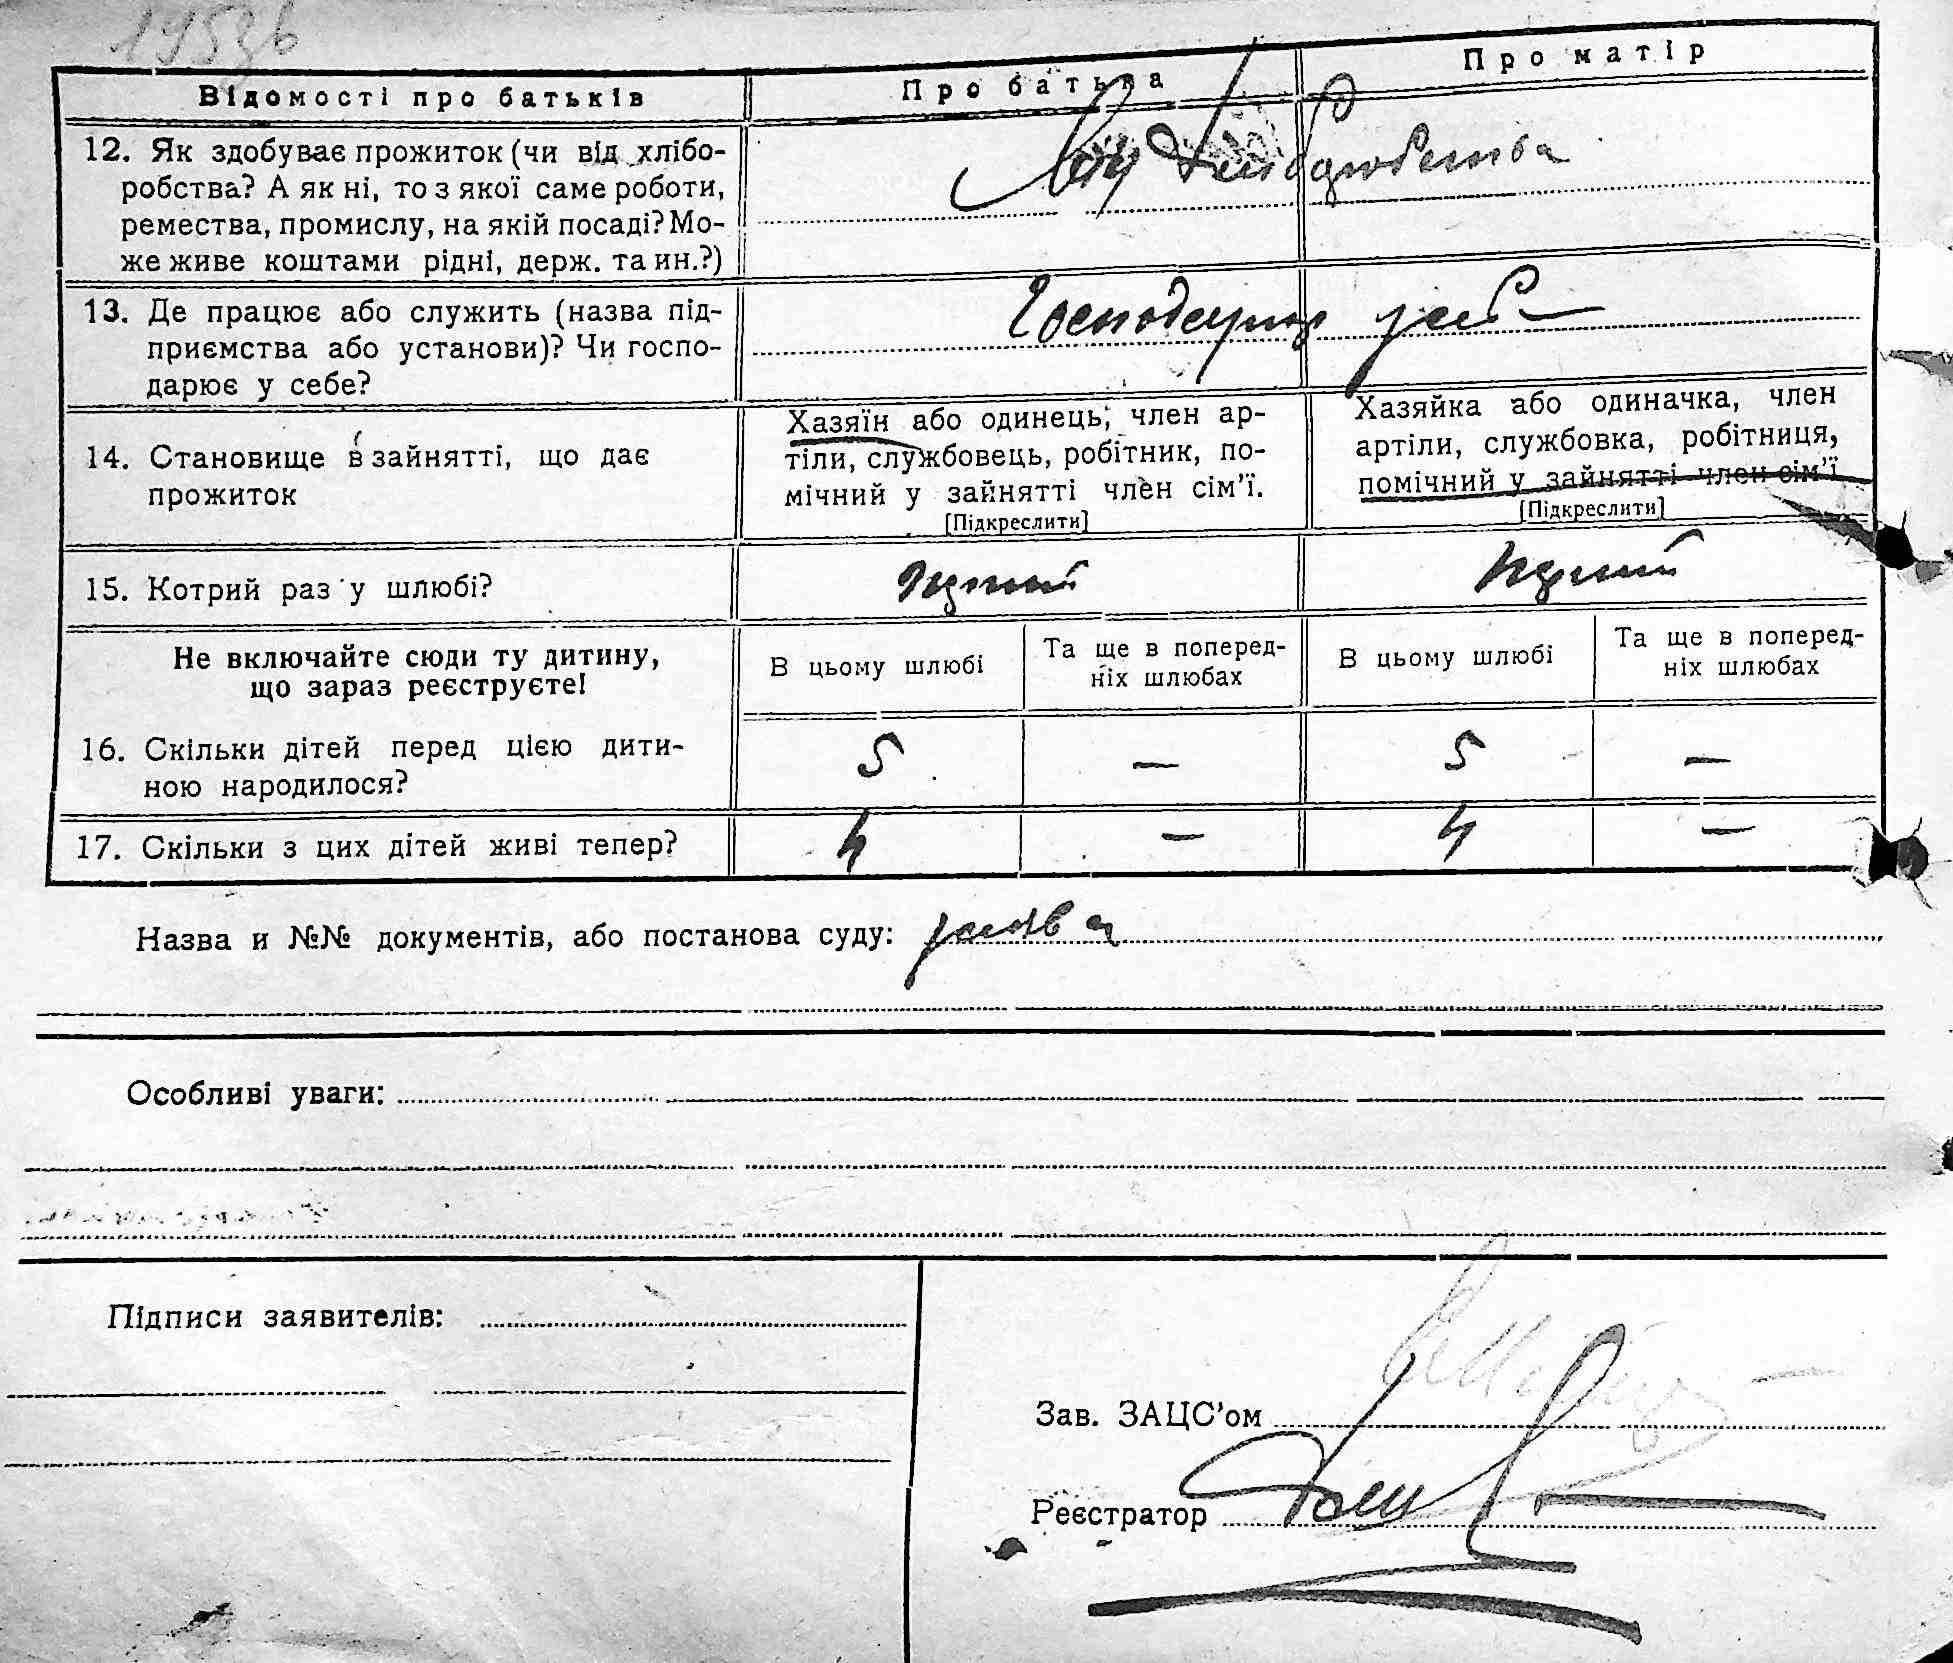 Відомості про батьків
Про батька
Про матір
12. Як здобуває прожиток (чи від хлібо-
робства? А як ні, то з якої саме роботи,
ремества, промислу, на якій посаді? Мо-
же живе коштами рідні, держ. та ин.?)
від хліборобства
13. Де працює або служить (назва під-
приємства або установи)? Чи госпо-
дарює у себе?
Господарює у себе
14. Становище в зайнятті, що дає
прожиток
Хазяїн або одинець, член ар-
тіли, службовець, робітник, по-
мічний у зайнятті член сім'ї.
[Підкреслити]
Хазяйка або одиначка, член
артіли, службовка, робітниця,
помічний у зайнятті член сім'ї
[Підкреслити]
15. Котрий раз у шлюбі?
перший
перший
Не включайте сюди ту дитину,
що зараз реєструєте!
В цьому шлюбі
Та ще в поперед-
ніх шлюбах
В цьому шлюбі
Та ще в поперед-
ніх шлюбах
16. Скільки дітей перед цією дити-
ною народилося?
5 — 5 —
17. Скільки з цих дітей живі тепер?
4 — 4 —
Назва и №№ документів, або постанова суду: заява
Особливі уваги:
Підписи заявителів:
Зав. ЗАЦС'ом
Реєстратор